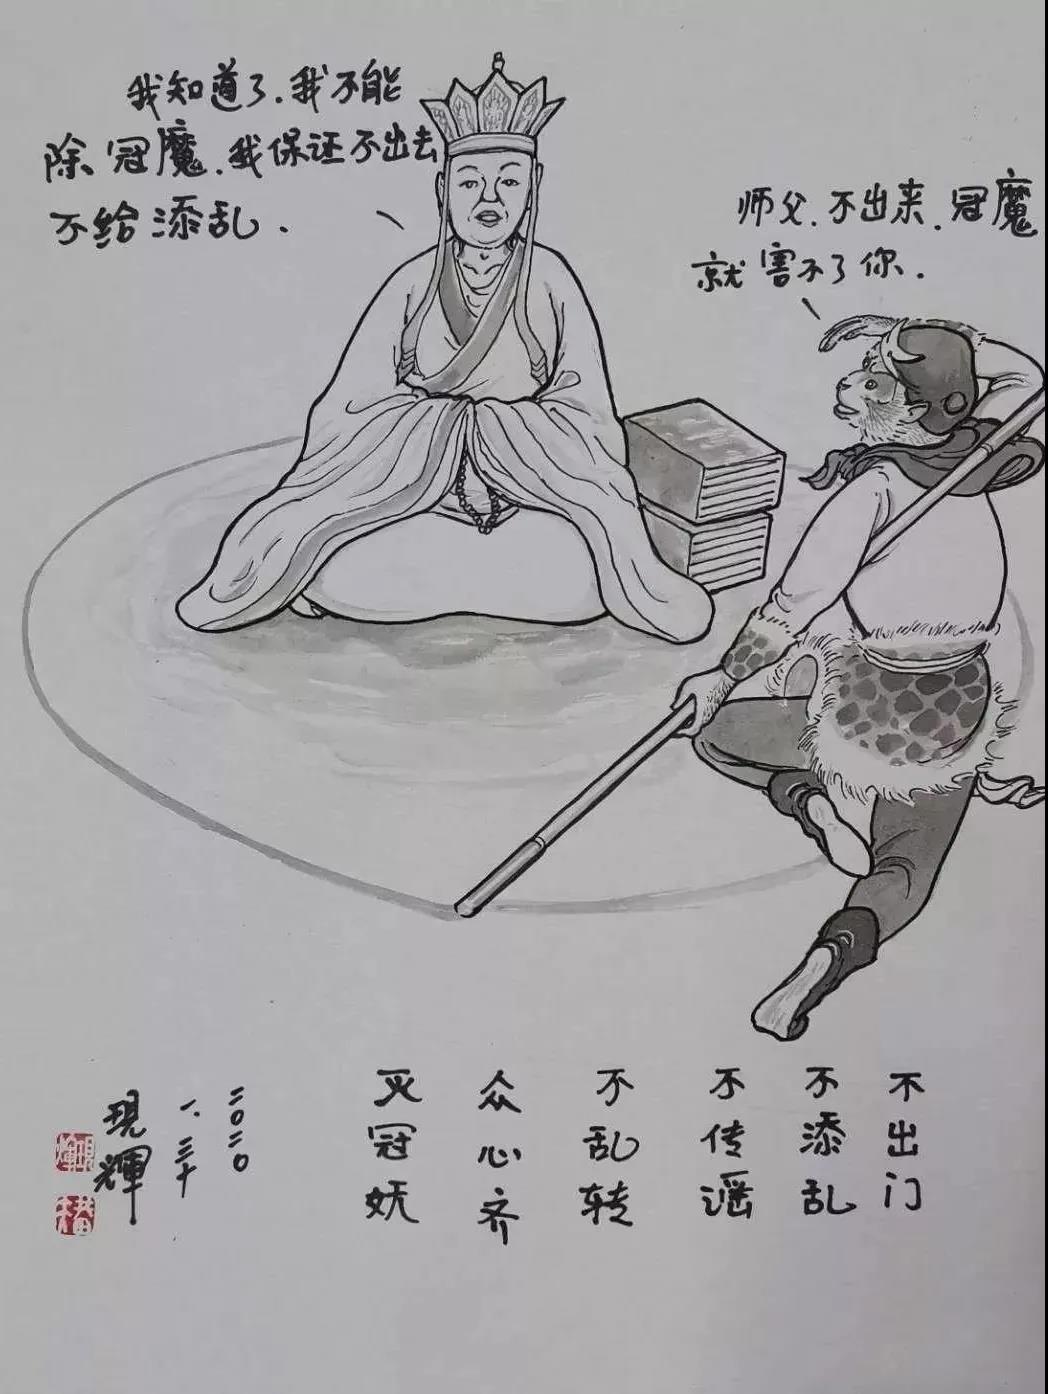 我知道了.我不能
除冠魔.我保证不出去
不给添乱.
师父.不出来.冠魔
就害不了你.
不出门
不添乱
不传谣
不乱转
众心齐
灭冠妖
二〇二〇
一.三十
現輝